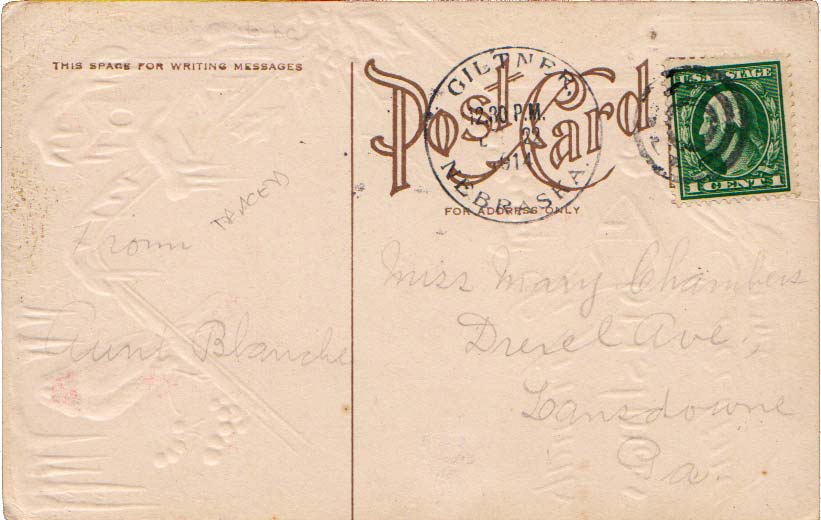 THIS SPACE FOR WRITING MESSAGES
Post Card
GILTNER,
12:30 P.M.
22
1914
NEBRASKA.
U.S. POSTAGE
1 CENTS 1
FOR ADDRESS ONLY
From
Aunt Blanche
Miss Mary Chambers
Drexel Ave.,
Lansdowne
Pa.